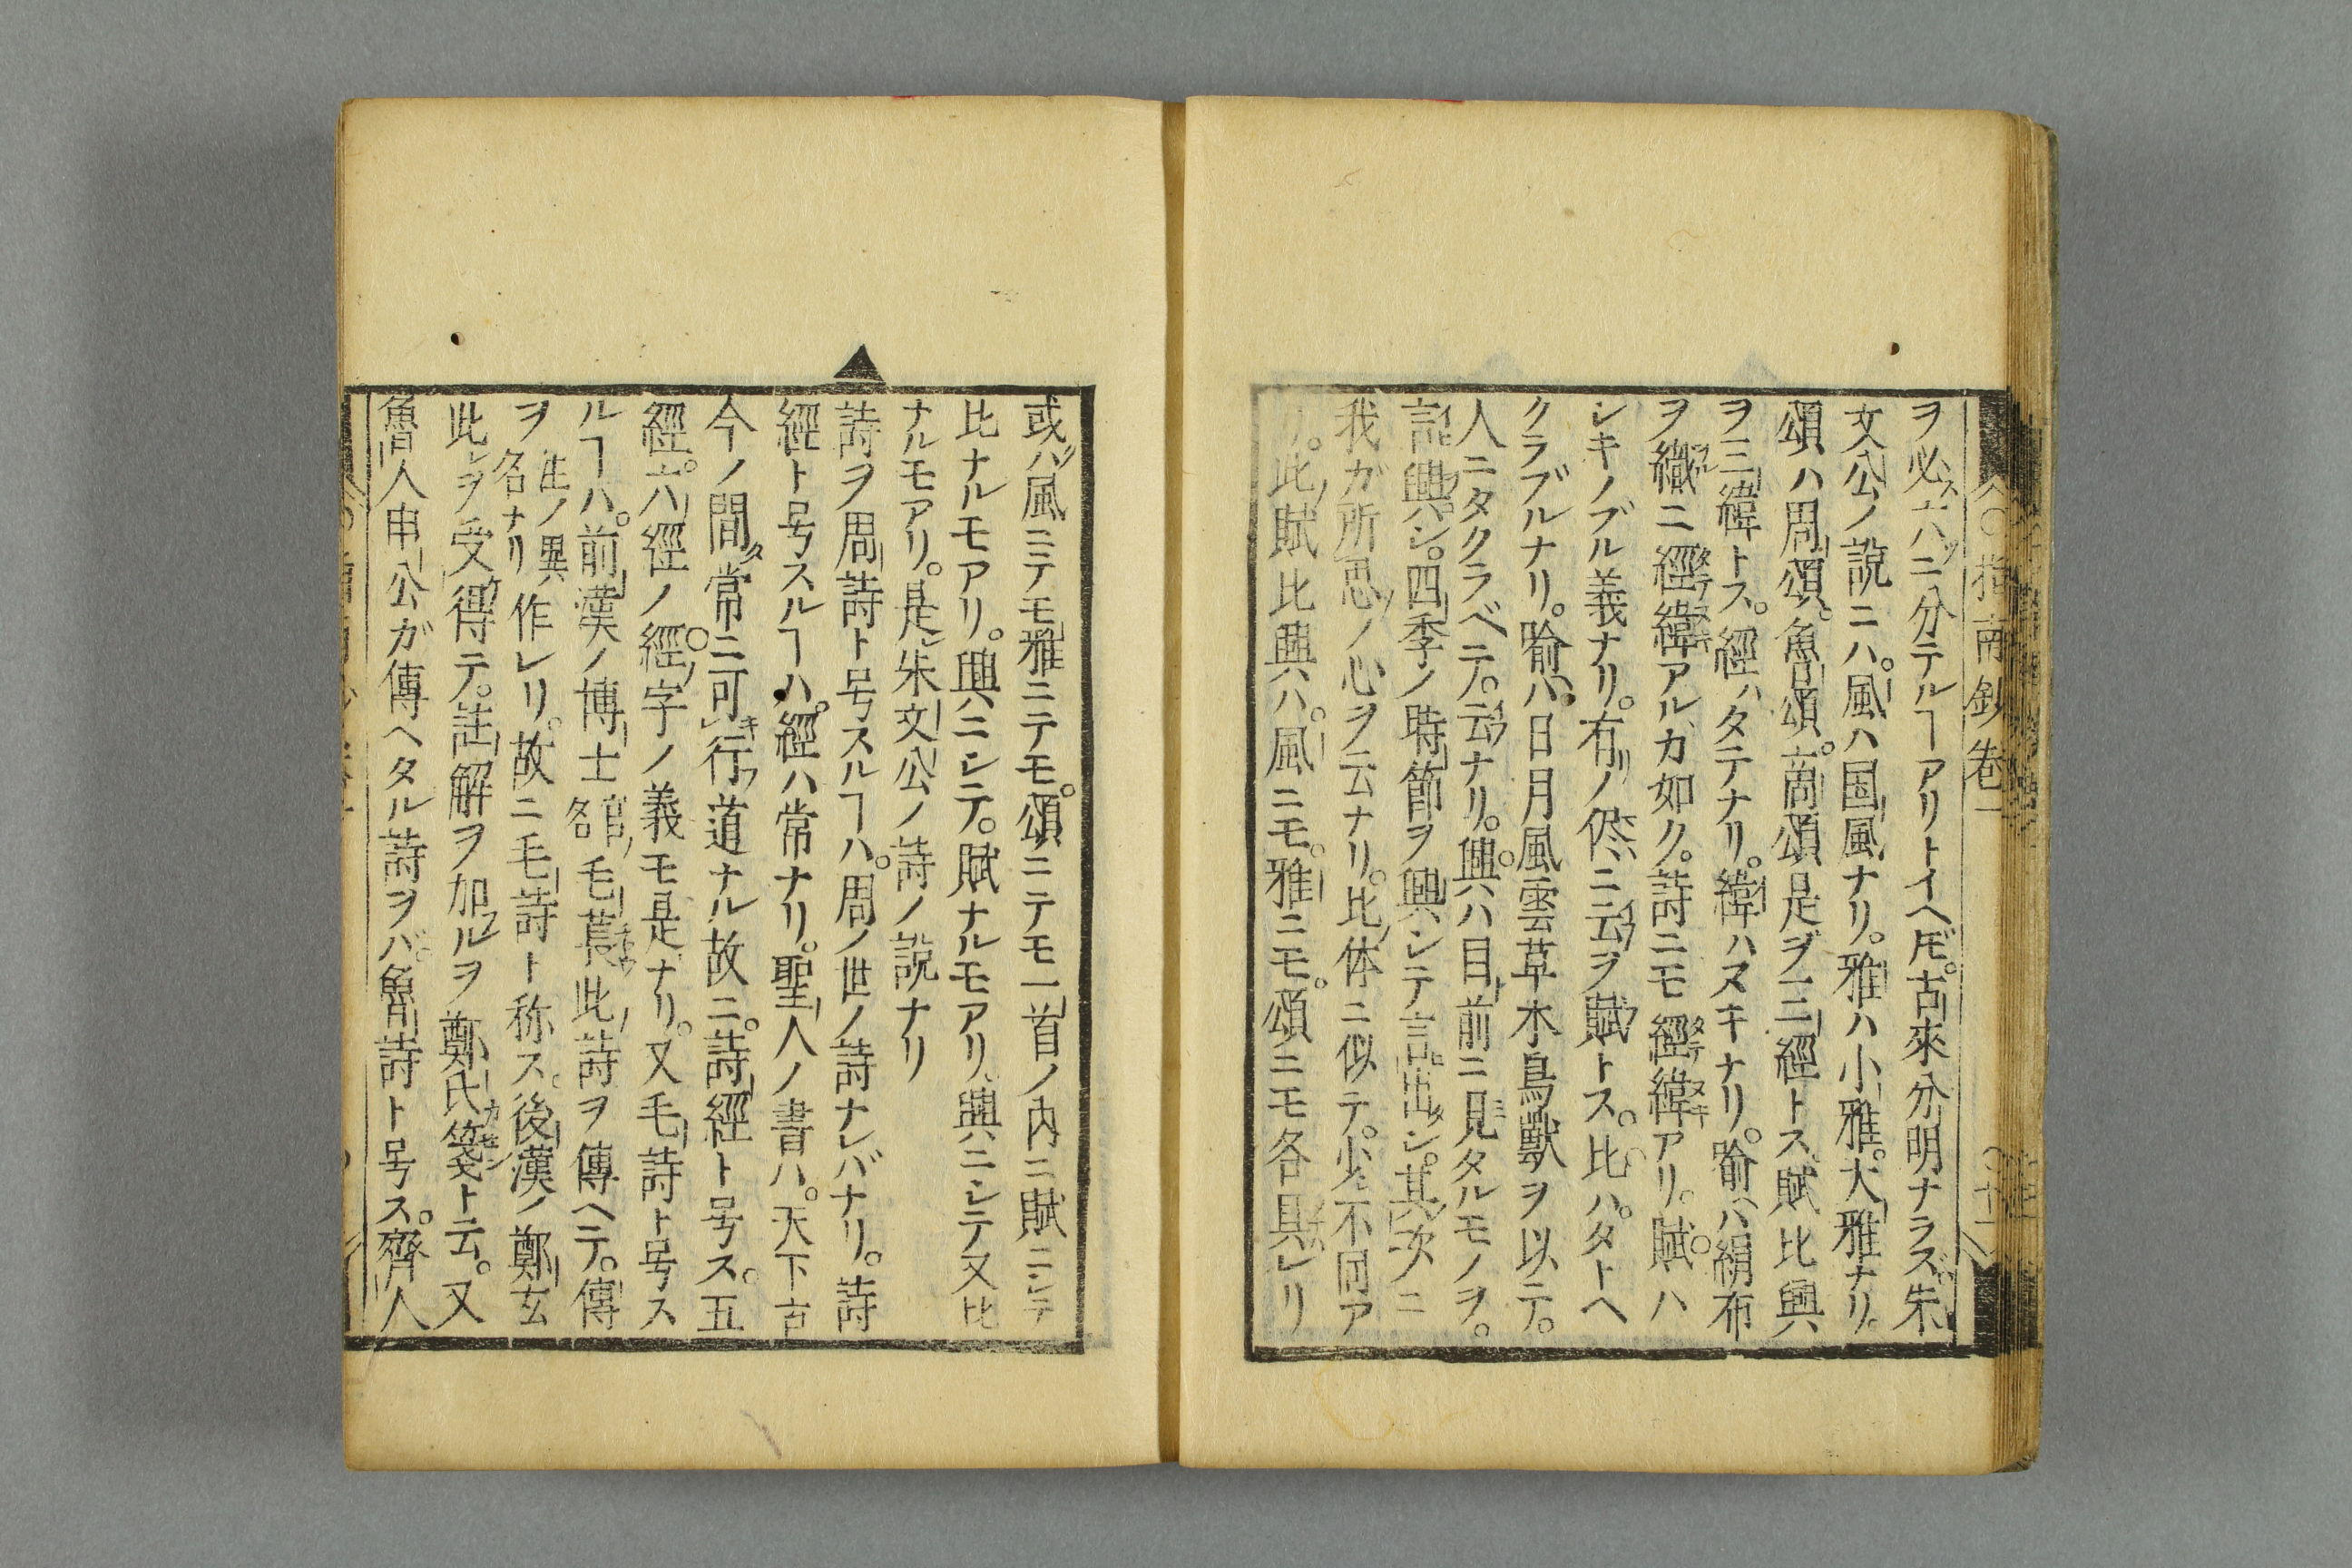 指南鈔卷一
ヲ必ス六ツニ分テルヿアリトイヘ𪜈。古來分明ナラズ。朱
文公ノ説ニハ。風ハ国風ナリ。雅ハ小雅。大雅ナリ。
頌ハ周頌。魯頌。商頌是ヲ三經トス。賦比興
ヲ三緯トス。經ハタテナリ。緯ハヌキナリ。喻ハ絹布
ヲ織ニ經緯アルカ如ク。詩ニモ經緯アリ。賦ハ
シキノブル義ナリ。有ノ侭ニ云ヲ賦トス。比ハ。タトヘ
クラブルナリ。喻ハ。日月風雲草木鳥獸ヲ以テ。
人ニタクラベテ。云ナリ。興ハ目前ニ見タルモノヲ。
記興シ。四季ノ時節ヲ興シテ言出シ。其次ニ
我ガ所思ノ心ヲ云ナリ。比体ニ似テ。少シ不同ア
リ。此賦比興ハ。風ニモ。雅ニモ。頌ニモ各具レリ
或ハ風ニテモ雅ニテモ。頌ニテモ一首ノ内ニ賦ニシテ
比ナルモアリ。興ニシテ。賦ナルモアリ。興ニシテ又比
ナルモアリ。是レ朱文公ノ詩ノ説ナリ
詩ヲ周詩ト号スルヿハ。周ノ世ノ詩ナレバナリ。詩
經ト号スルヿハ。經ハ常ナリ。聖人ノ書ハ。天下古
今ノ間タ常ニ可キ行フ道ナル故ニ。詩經ト号ス。五
經。六經ノ經ノ字ノ義モ是ナリ。又毛詩ト号ス
ルヿハ。前漢ノ博士官ノ名毛萇此詩ヲ傳ヘテ。傳
ヲ註ノ異名ナリ作レリ。故ニ毛詩ト称ス。後漢ノ鄭玄
此レヲ受得テ。註解ヲ加フルヲ鄭氏箋ト云。又
魯人申公ガ傳ヘタル詩ヲバ。魯詩ト号ス。齊人